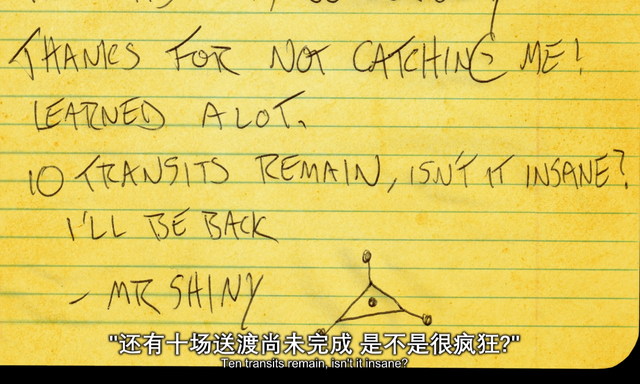 THANKS FOR NOT CATCHING ME!
LEARNED A LOT.
10 TRANSITS REMAIN, ISN'T IT INSANE?
I'LL BE BACK
- MR SHINY
"还有十场送渡尚未完成 是不是很疯狂?"
Ten transits remain, isn't it insane?